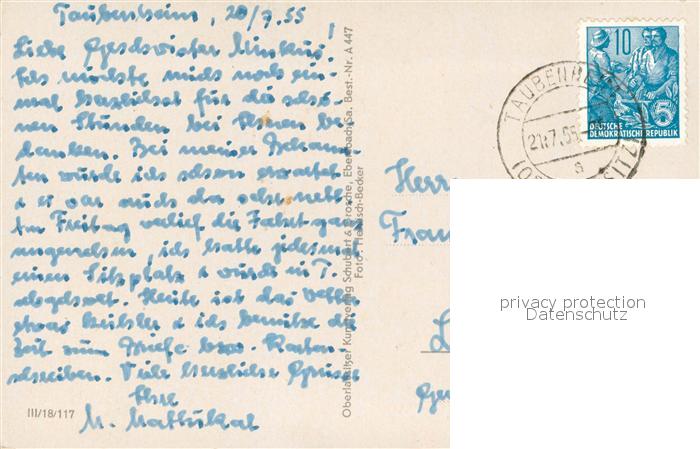 Taubenheim, 20/7.55
Liebe Geschwister Minkus!
Ich möchte mich noch ein-
mal herzlichst für die schö-
nen Stunden bei Ihnen be-
danken. Bei meiner Bekann-
ten wurde ich schon erwartet
& es war auch da sehr nett.
Am Freitag verlief die Fahrt ganz
angenehm, ich hatte jedesmal
einen Sitzplatz & wurde in T.
abgeholt. Heute ist das Wetter
etwas kühler & ich benütze die
Zeit zum Briefe bzw. Karten
schreiben. Viele herzliche Grüsse
Ihre
M.
III/18/117
Oberlausitzer Kunstverlag Schubert & Grosche, Ebersbach/Sa. Best.-Nr. A 447
Foto: -Becker
10
DEUTSCHE
DEMOKRATISCHE REPUBLIK
5
TAUBENH
21.7.55
s
Herr
Frau
privacy protection
Datenschutz